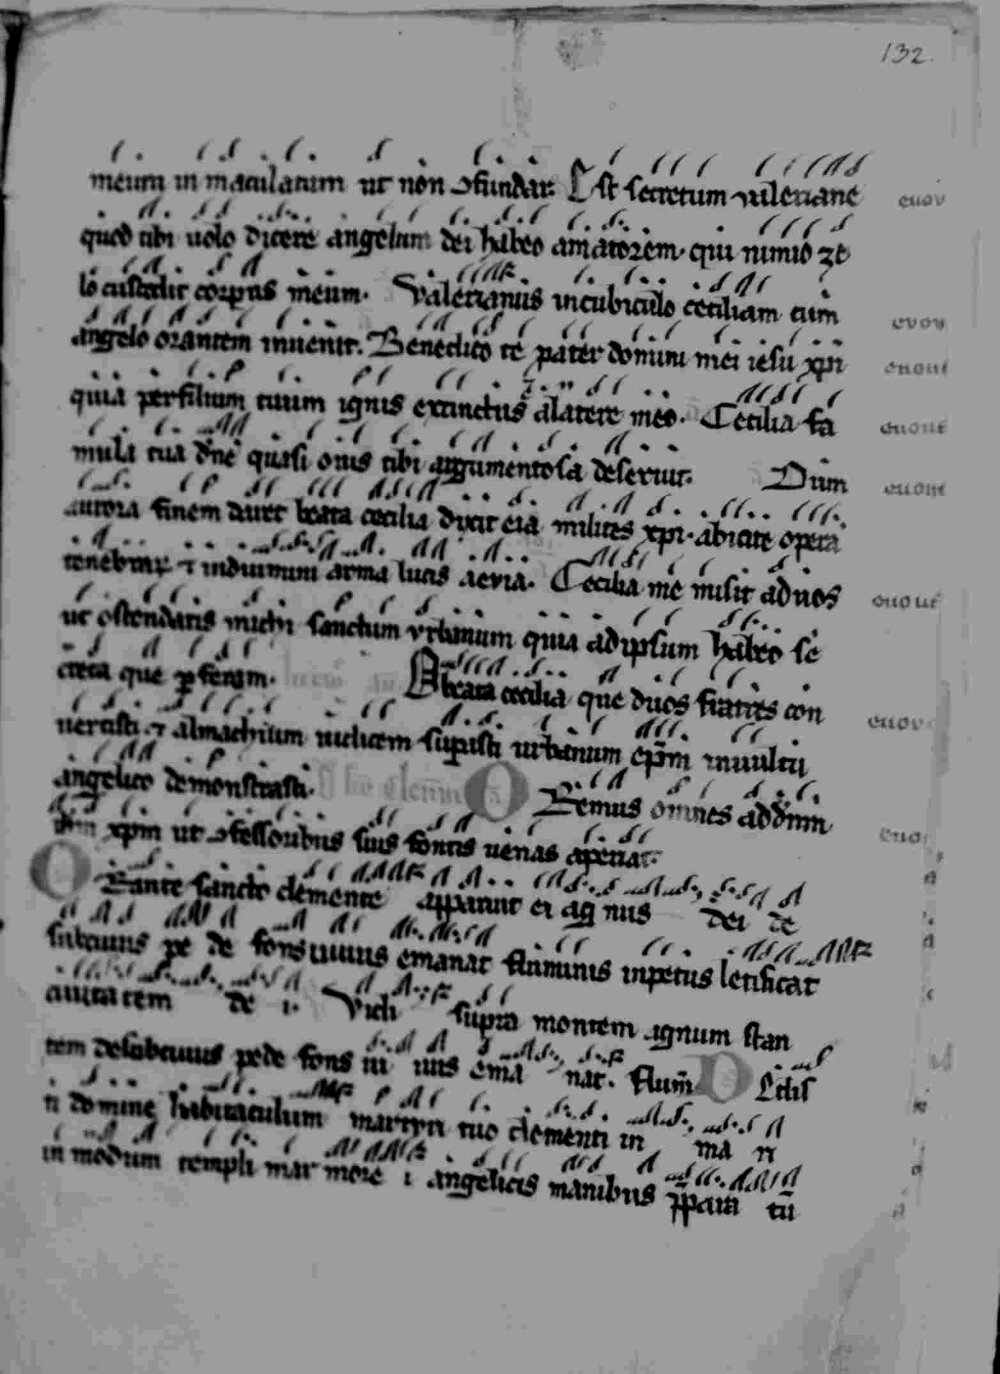 132.
meum in maculatum ut non ↄfundar. Est secretum valeriane euov
quod tibi uolo dicere angelum dei habeo amatorem. qui nimio ze
lo custodit corpus meum. Valerianus in cubiculo ceciliam cum euou
angelo orantem inuenit. Benedico te pater domini mei iesu xpi euoue
quia per filium tuum ignis extinctus alatere meo. Cecilia fa euoue
mula tua dne quasi ouis tibi argumentosa deseruit. Dum euoue
aurora finem daret beata cecilia dixit eia milites xpi. abicite opera
indiumini arma lucis aeuia. Cecilia me misit ad uos euoue
ut ostendatis michi sanctum vrbanum quia ad ipsum habeo se
creta que ꝑferam.
O beata cecilia que duos fratres con euou
uertisti ⁊ almachium iudicem supasti urbanum epm in uultu
angelico demonstrasti. O Remus omnes ad dnm
ihm xpm ut ↄfessoribus suis fontis uenas aperiat.
O Rante sancto clemente apparuit ei ag nus dei de
sub cuius pe de fons uiuus emanat fluminis inpetus letificat
ciuitatem de i. Vidi supra montem agnum stan
tem de sub cuius pede fons ui uus ema nat. Flum D Edis
ti domine habitaculum martyri tuo clementi in ma ri
in modum templi mar more i angelicis manibus tu